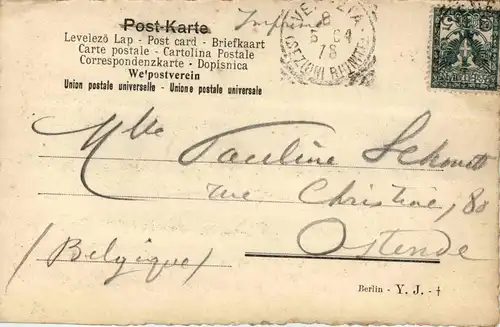 Post-Karte
Levelező Lap - Post card - Briefkaart
Carte postale - Cartolina Postale
Correspondenzkarte - Dopisnica
Weltpostverein
Union postale universelle - Unione postale universale
VENEZIA
8
5 04
7S
Mlle Pauline Schmidt
rue Christine, 80
Ostende
(Belgique)
Berlin - Y. J. - †